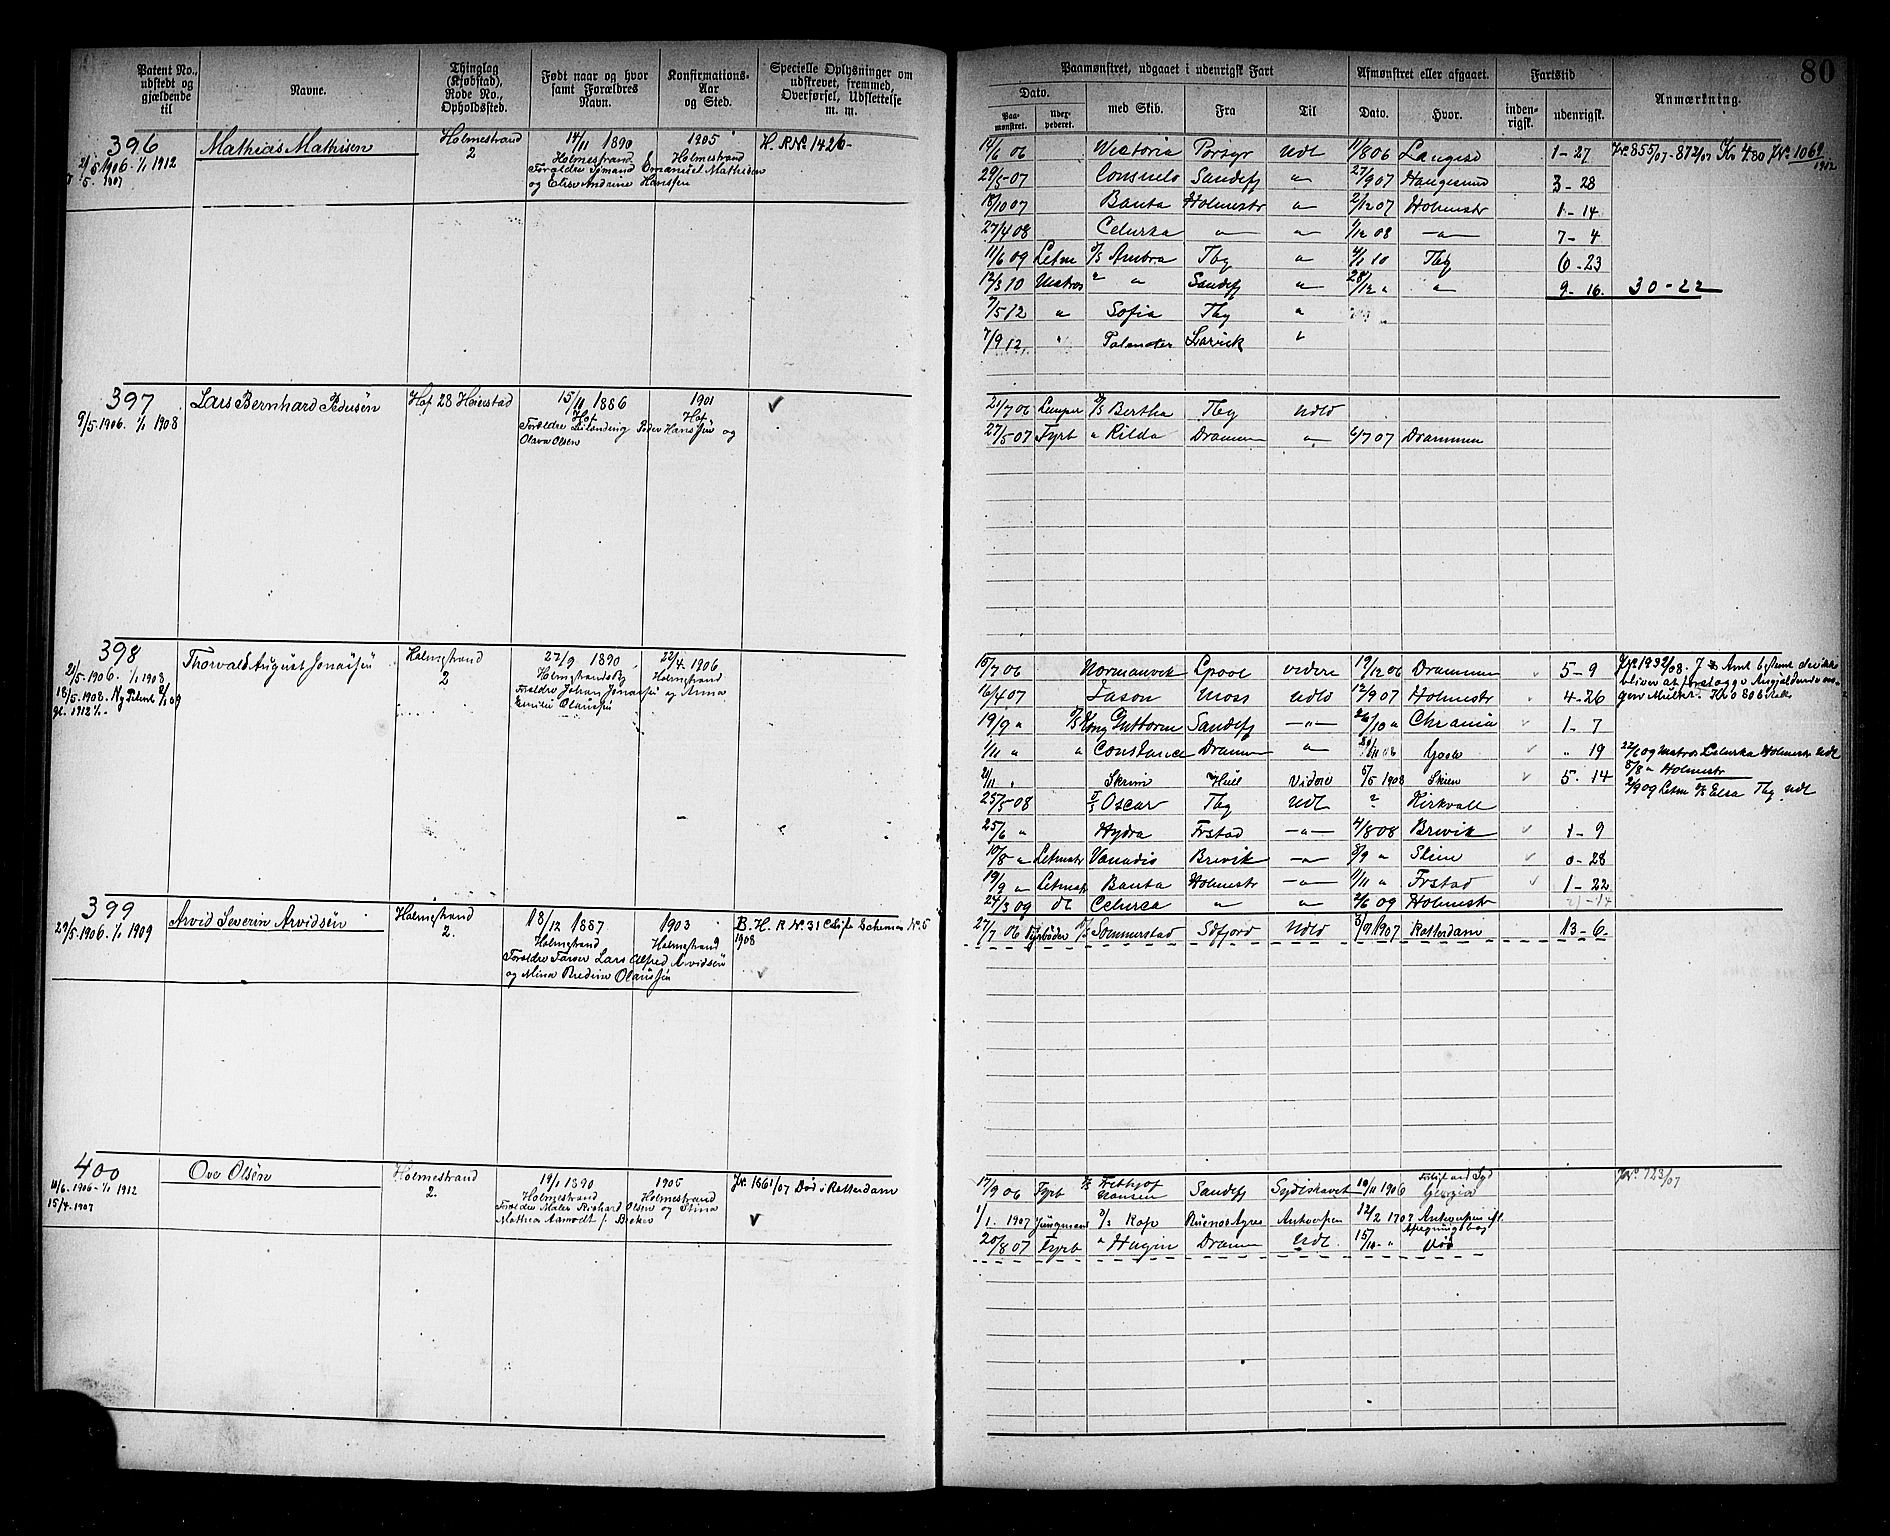 Patent No., udstedt og gjældende til
Navne.
Thinglag (Kjøbstad), Rode No., Opholdssted.
Født naar og hvor samt Forældres Navn.
Konfirmations-Aar og Sted.
Specielle Oplysninger om udskrevet, fremmed, Overførsel, Udslettelse m. m.
Paamønstret, udgaaet i udenrigsk Fart
Afmønstret eller afgaaet.
Fartstid
Anmærkning.
80
Dato.
Paa-mønstret.
med Skib.
Fra
Til
Dato.
Hvor.
inden-rigsk.
udenrigsk.
396
21/5 1906 - 1/1 1912
Mathias Mathisen
Holmestrand
2
14/11 1890
Holmestrand
Forældre
Emanuel Mathisen
og Elise Andrine Hanssen
1905
Holmestrand
H. R No. 1426-
14/6 06 Porsgr Udl 11/8 06 Langesd 1-27
29/5-07 Consuelo Sandefj " 27/9 07 Haugesund 3-28
18/10 07 Banta Holmestr " 2/12 07 Holmestr 1-14
27/4 08 Celurca " " 1/12 08 " 7-4
11/6 09 Letm D/S Ambra Tbg " 4/1 10 Tbg 6-23
12/3 10 Matros " " Sandefj " 28/12 " " 9-16. 30-22
7/5 12 " Sofia Tbg "
7/9 12 " Larvik "
397
9/5.1906. 1/1 1908
Lars Bernhard Pedersen
Hof 28 Heierstad
15/11 1886
Hof
Forældre Peder Hanssen og
Olava Olsen
1901
Hof
21/7 06 D/S Bertha Tbg Udld
27/5 07 Fyrb " Rilda Dramm " 6/7 07 Drammen
398
21/5.1906. 1/1 1908
18/5.1908. Ny Patent
gl. 1912 1/1.
Thorvald August Jonassen
Holmestrand
2
27/9 1890
Holmestrand
Forældre Johan Jonassen og Anna
Emilie Olaussen
22/4 1906
Holmestrand
15/7 06 Normanvik Goole videre 19/12 06 Drammen 5-9
16/4 07 Jason Moss Udld 12/9 07 Holmestr 4-26
19/9 " D/S Kong Guttorm Sandefj " 26/10 " Chrania 1-7
1/11 " " Constance Dramm " Goole " 19
Skrim Hull Videre 5/5 1908 Skien 5-14
25/5-08 Oscar Tbg Udl " Kirkvall
25/6 " Hydra Frstad " 4/8 08 Brevik 1-9
10/8 " Letmatr Vanadis Brevik " 8/9 " 0-28
19/9 " Letmatr Banta Holmestr " 1/11 " Frstad 1-22
24/3 09 dt Celurca " " 2/6 09 Holmestr
22/6 09 Matros Celurca Holmestr Udl
8/8 " Holmestr
2/9 09 Letm D/S Elsa Tbg Udl
399
29/5.1906. 1/1 1909
Arvid Severin Arvidsen
Holmestrand
2.
18/12 1887
Holmestrand
Forældre Farver Lars Alfred Arvidsen
og Mina Bredine Olaussen
1903
Holmestrand
B. H. R No. 31
1908
27/7 06 Fyrbøder D/S Sommerstad Sdfjord Udld 1907 Rotterdam 13-6
400
11/6.1906-1/1 1912
15/4.1907
Ove Olsen
Holmestrand
2.
19/1 1890
Holmestrand
Forældre Maler Richard Olsen og Stina
Mathea Aamodt f. Becker
1905
Holmestrand
JN. 1861/07 Død i Rotterdam
17/9 06 Fyrb Fridtjof Nansen Sandefj Sydishavet 10/11 1906 Georgia
1/1. 1907 Jungmand D/S Kap Buenos Ayres Antwerpen 12/2 1907 Antwerpen
20/8 07 Fyrb " Hugin Dramm Udl 15/10 " Død
JN. 723/07